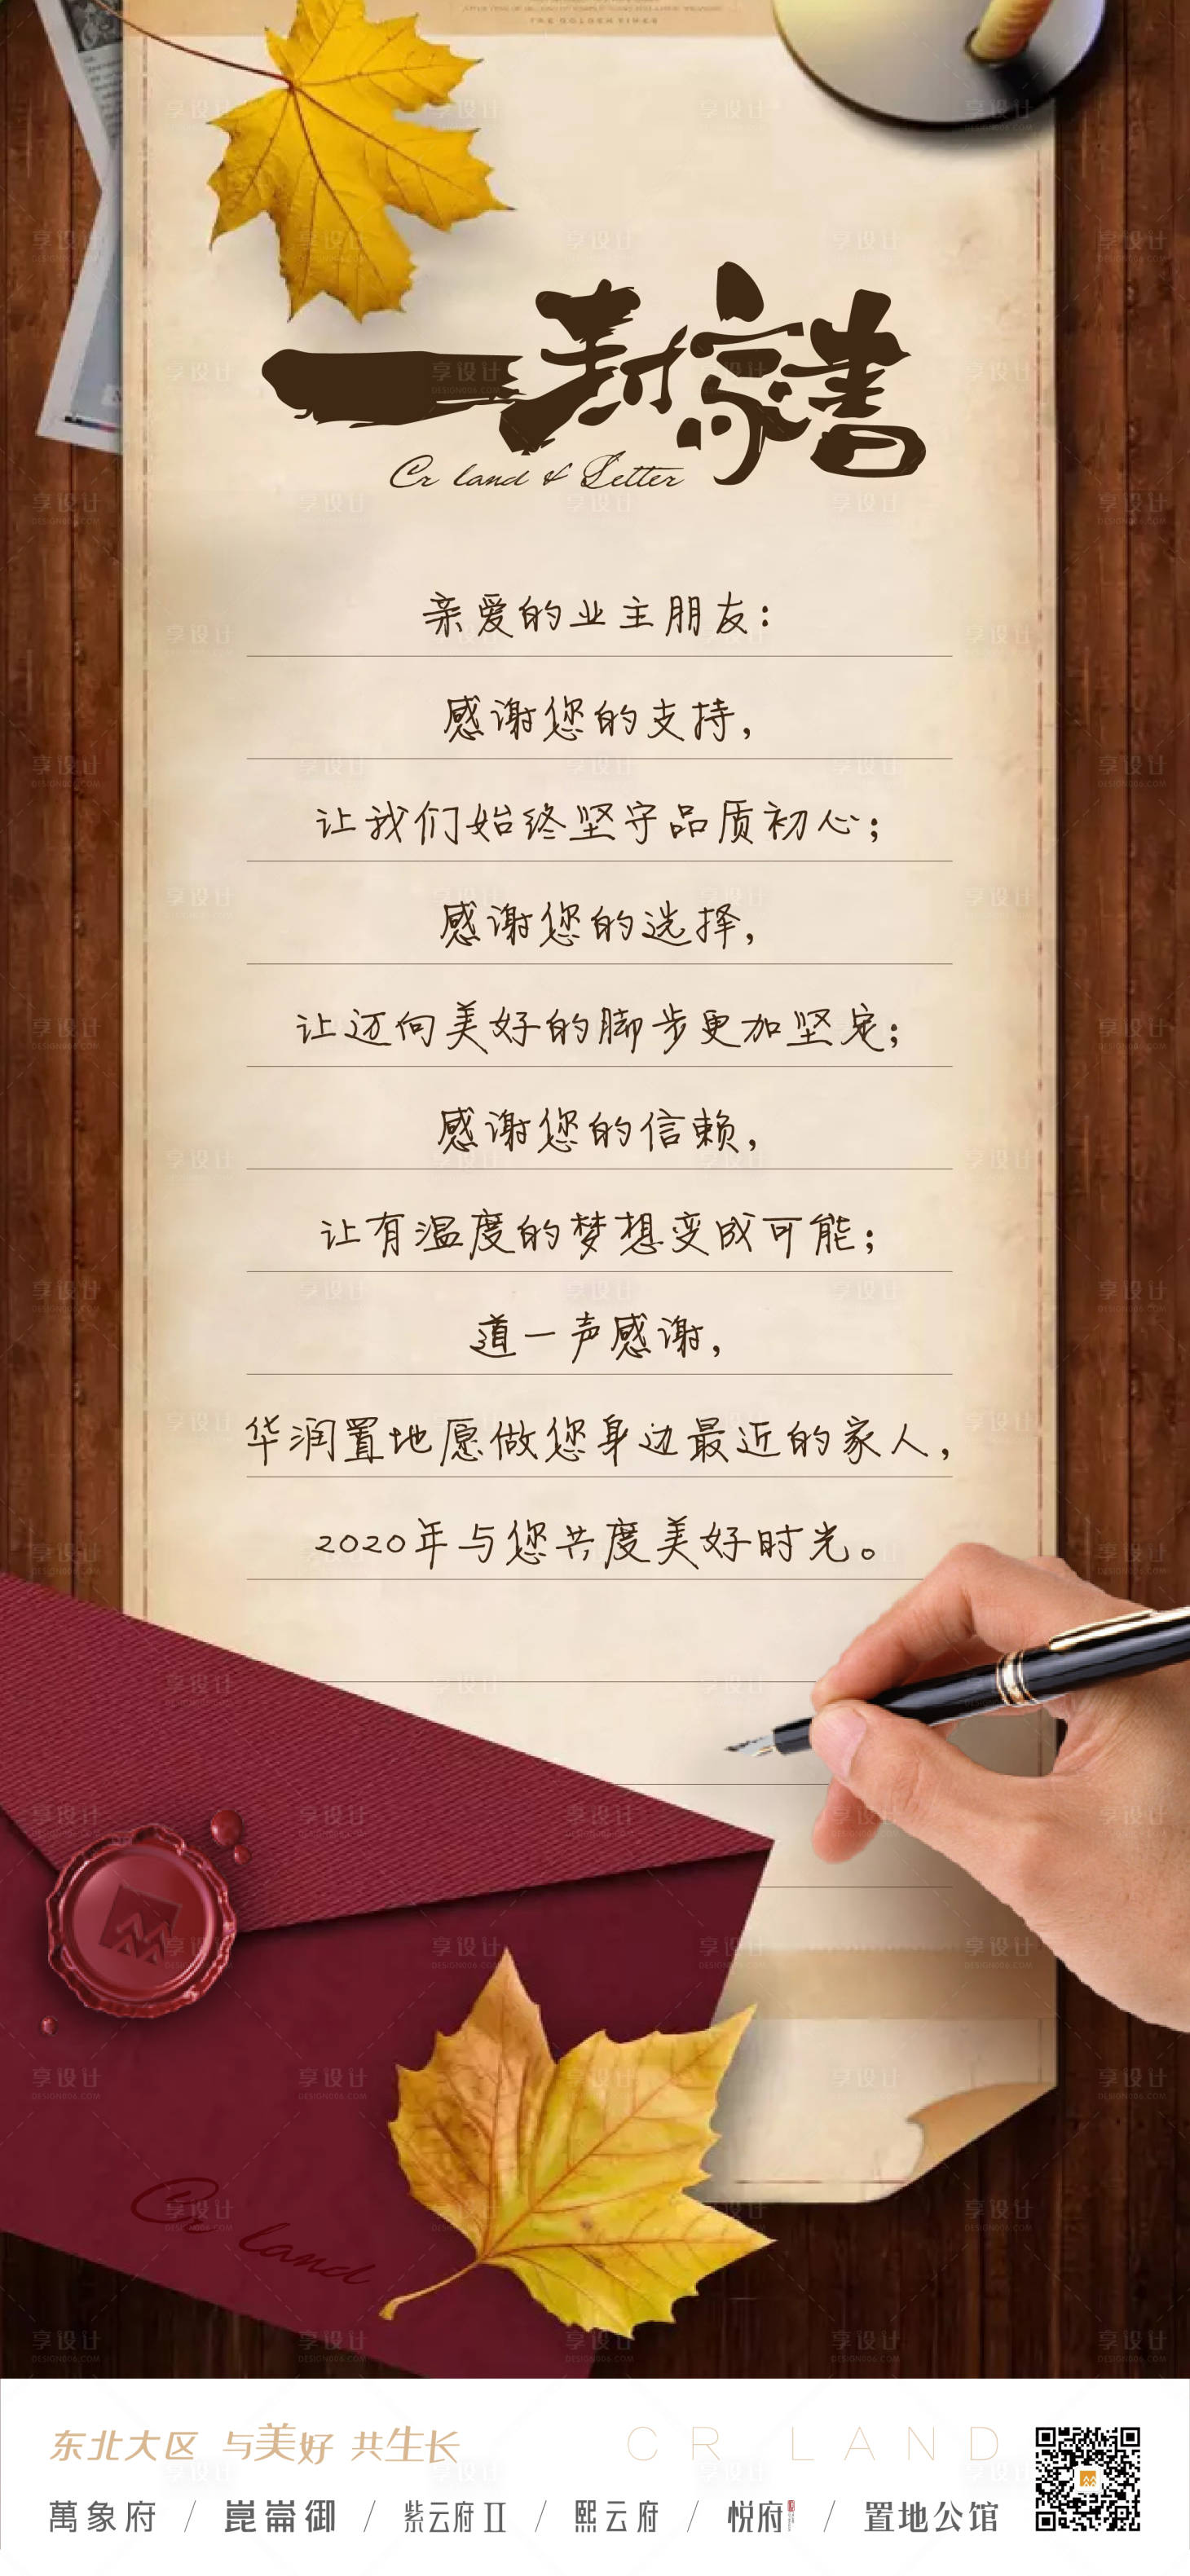 THE GOLDEN TIMES
一封家書
Cr land & Letter
亲爱的业主朋友：
感谢您的支持，
让我们始终坚守品质初心；
感谢您的选择，
让迈向美好的脚步更加坚定；
感谢您的信赖，
让有温度的梦想变成可能；
道一声感谢，
华润置地愿做您身边最近的家人，
2020年与您共度美好时光。
Cr land
东北大区 与美好 共生长
CR LAND
萬象府 / 崑崙御 / 紫云府Ⅱ / 熙云府 / 悦府 / 置地公馆
享设计
DESIGN006.COM